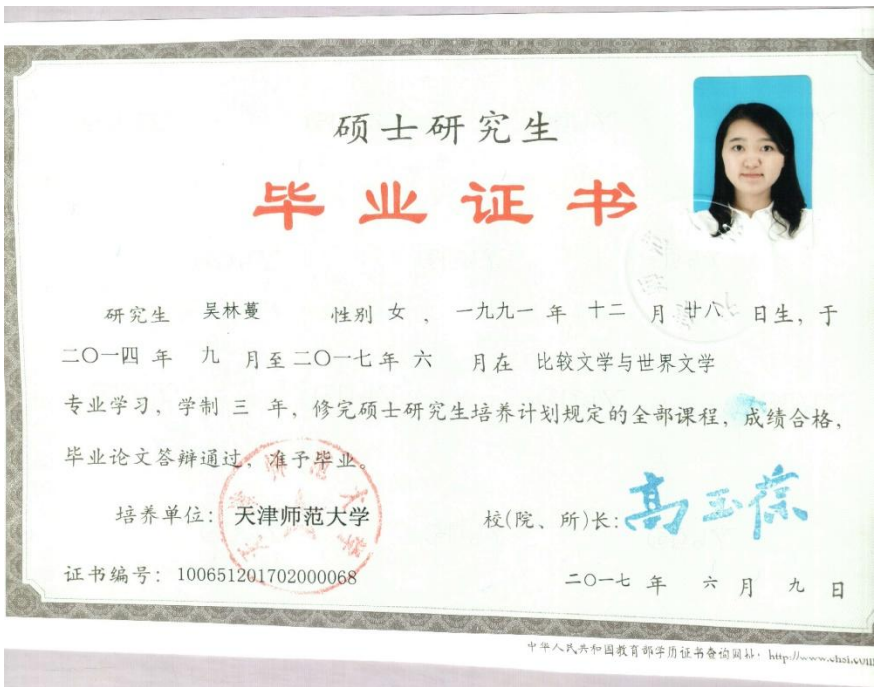 硕士研究生
毕业证书
研究生 吴林蔓 性别 女 ， 一九九一 年 十二 月 廿八 日生，于
二〇一四 年 九 月至 二〇一七 年 六 月在 比较文学与世界文学
专业学习，学制 三 年，修完硕士研究生培养计划规定的全部课程，成绩合格，
毕业论文答辩通过，准予毕业。
培养单位： 天津师范大学 校(院、所)长: 高玉葆
证书编号： 100651201702000068 二〇一七 年 六 月 九 日
中华人民共和国教育部学历证书查询网址：http://www.chsi.com